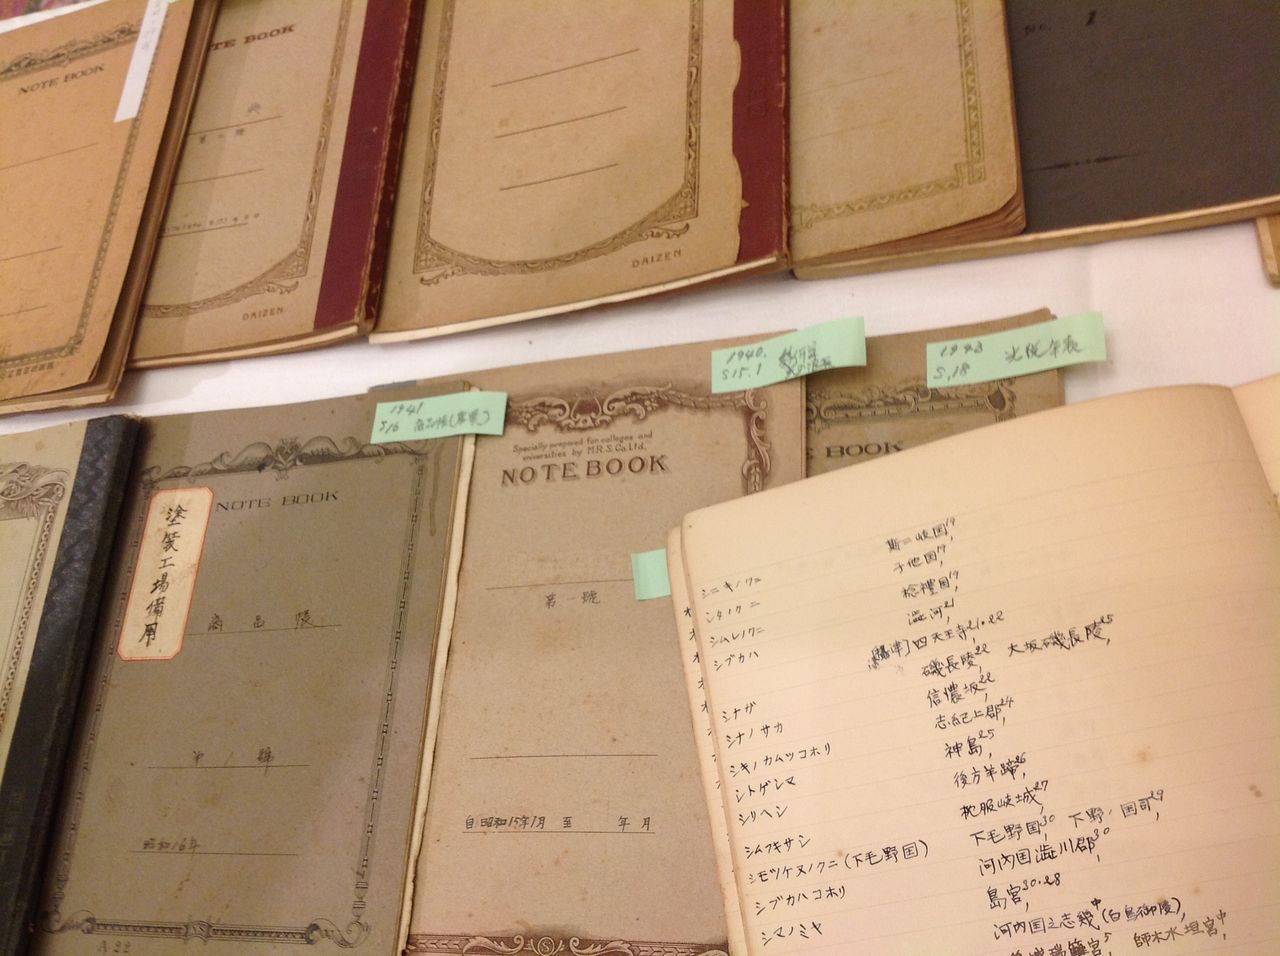 NOTE BOOK
NOTE BOOK
典
DAIZEN
DAIZEN
No. 1
1941
S16 商品帳
1940.
S15.1
1943
S.18 年表
NOTE BOOK
塗装工場備用
商品帳
第1號
昭和16年
A22
Specially prepared for colleges and
universities by M.R.S. Co. Ltd.
NOTE BOOK
第一號
自昭和15年1月 至 年 月
BOOK
シニキノクニ 斯二岐国19,
シタノクニ 子他国19,
シムレノクニ 稔禮国19,
シブカハ 澁河21
四天王寺21.22
シナガ 磯長陵22, 大坂磯長陵25,
シナノサカ 信濃坂22,
シキノカムツコホリ 志紀上郡24
シトゲシマ 神島25,
シリヘシ 後方羊蹄26
シムフキサシ 枕服岐城27,
シモツケヌノクニ(下毛野国) 下毛野国30, 下野ノ国司29
シブカハコホリ 河内国澁川郡30,
シマノミヤ 島宮30.28
河内国之志幾中(白鳥御陵),
師木水垣宮中,